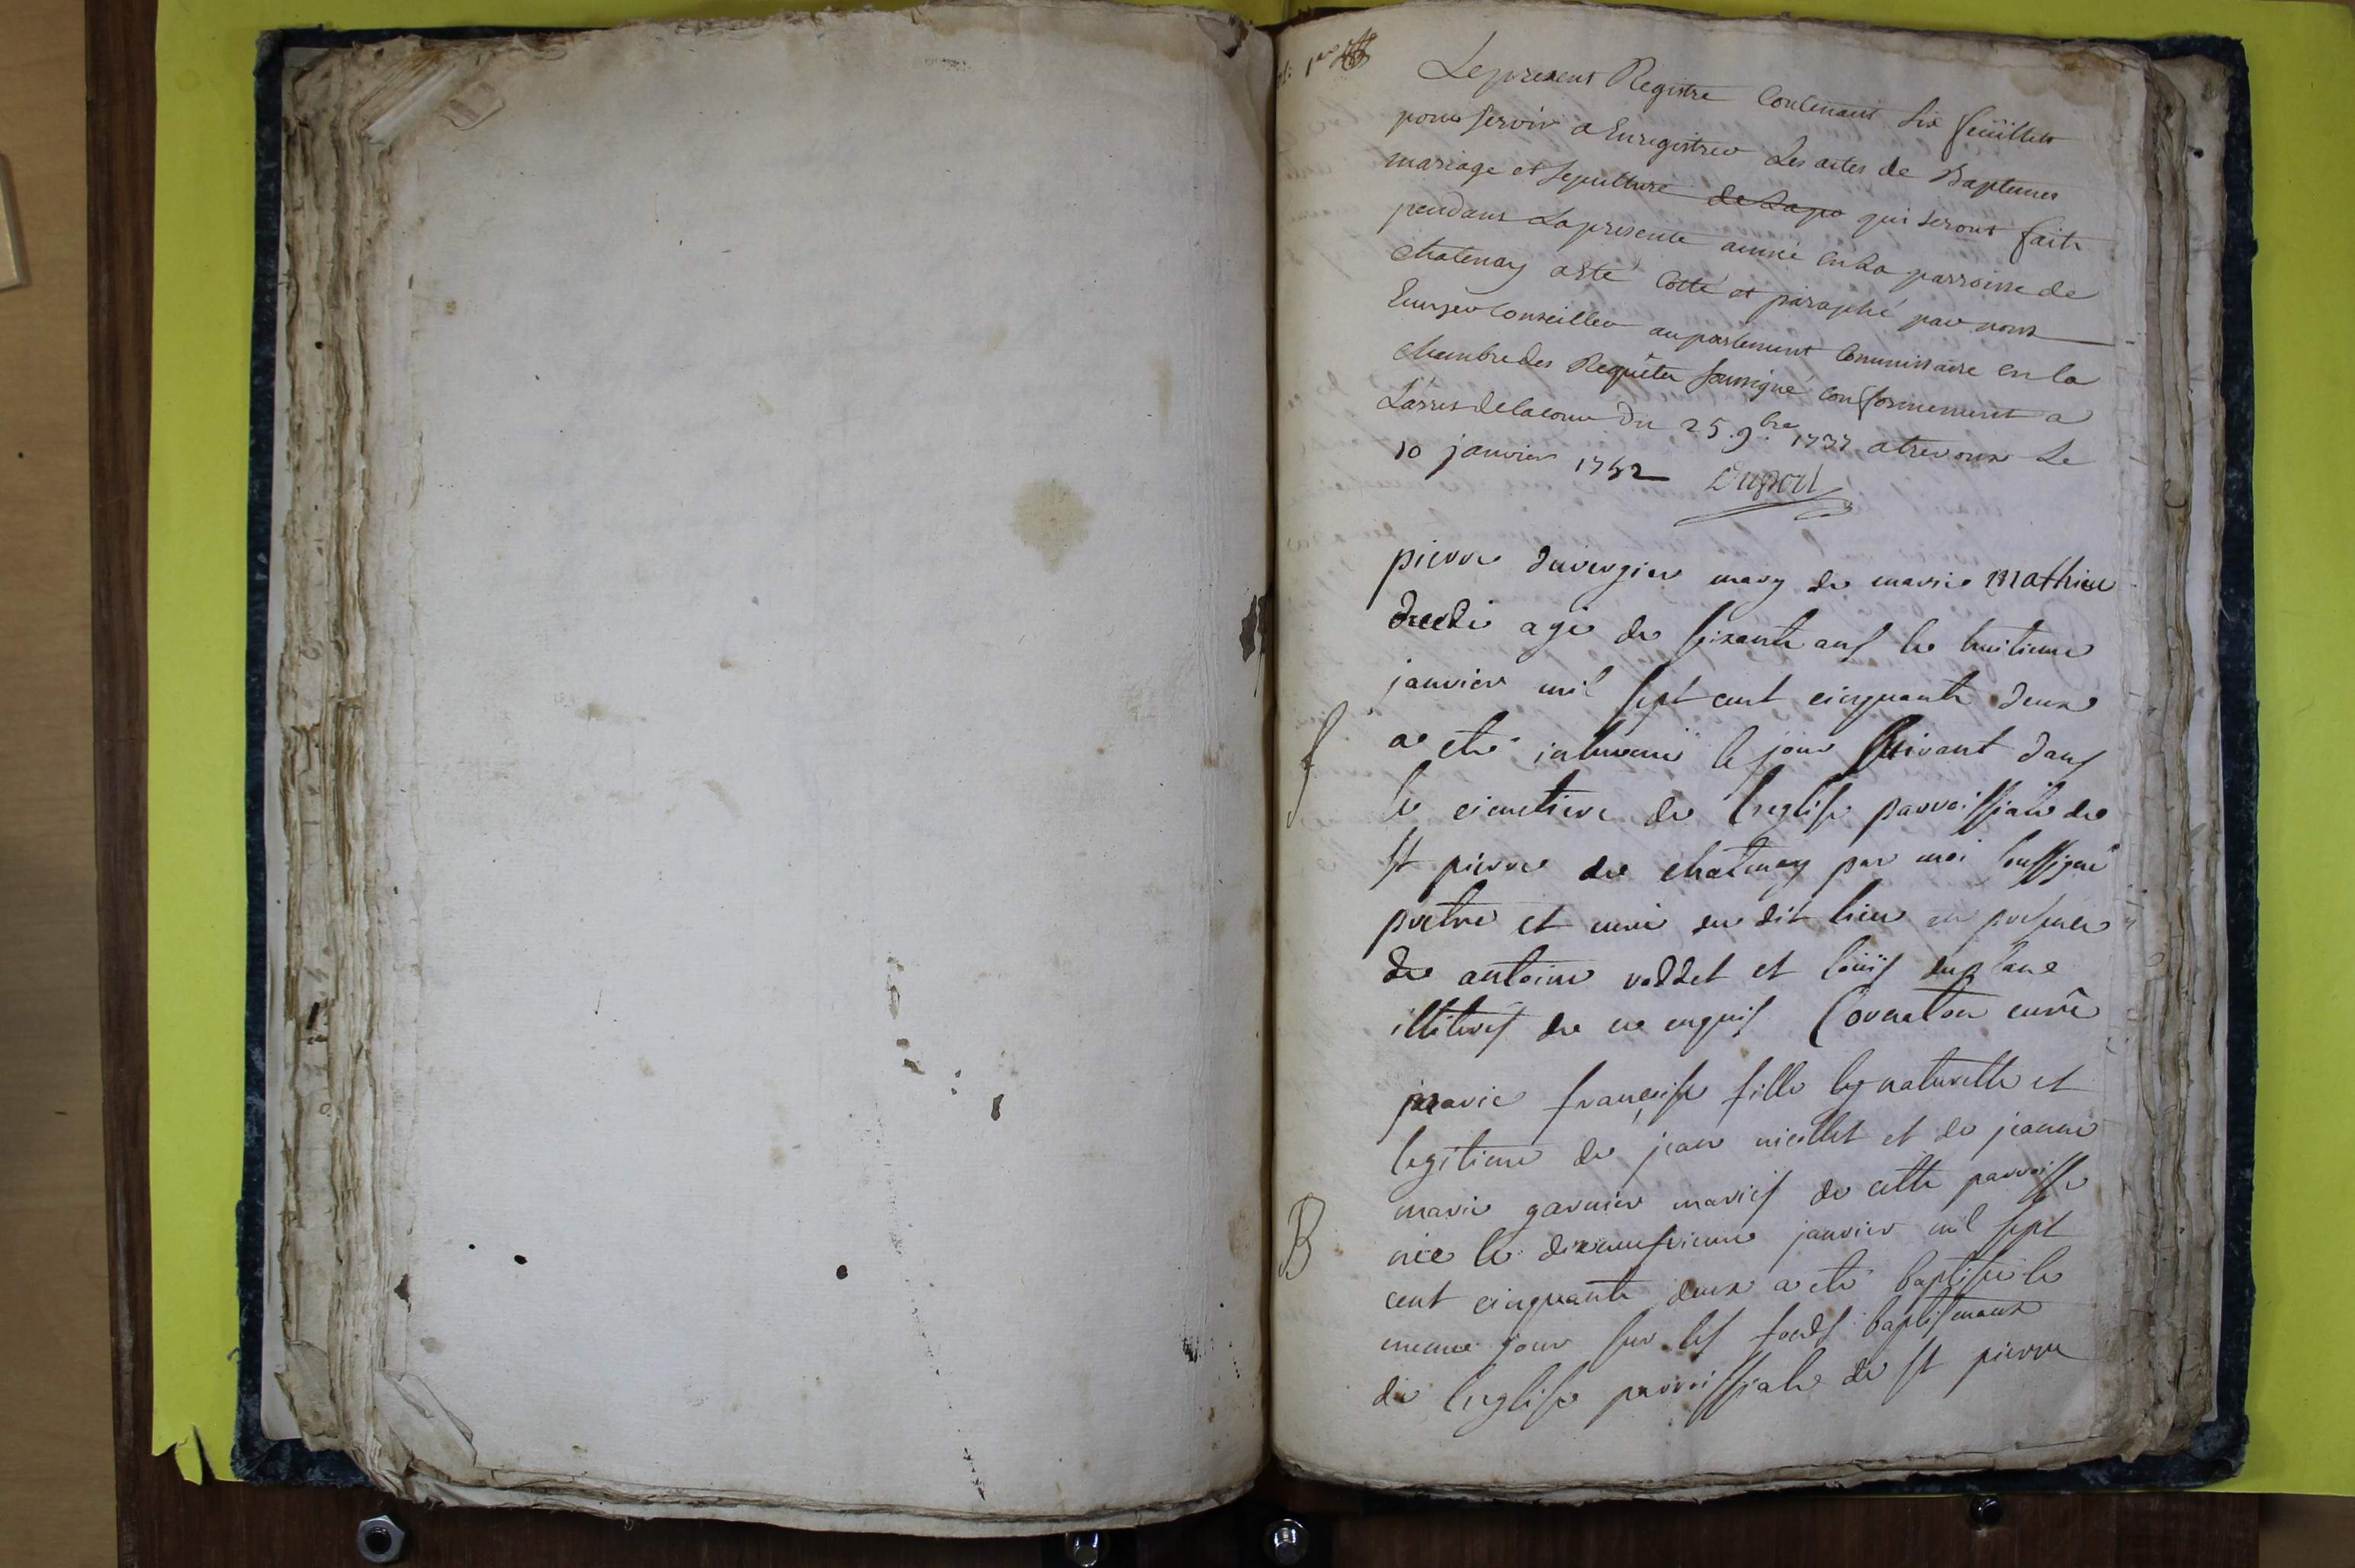 Le present Registre Contenant Six feüillets
pour servir a Enregistrer Les actes de Baptemes
mariage et sepulture de Lapa qui seront faits
pendans La presente année en La parroisse de
Chatenay a Eté Cotté et paraphé par nous
Ecuyer Conseiller au parlement Commissaire en la
Chambre des Requêtes soussigné conformement a
L'arrest de la cour Du 25. 9bre 1737 a trevoux Le
10 janvier 1752
pierre duvergier mary de marie mathieu
decede agé de soixante ans le huitieme
janvier mil sept cent cinquante deux
a eté inhumé le jour suivant dans
f
le cimetiere de l'eglise parroissiale de
st pierre de chatenay par moi soussigné
pretre et curé du dit lieu en presence
de antoine voddet et loüis
illiteres de ce enquis curé
marie françoise fille leg naturelle et
legitime de jean nicollet et de jeanne
marie garnier mariés de cette parroisse
B
née le dixneufvieme janvier mil sept
cent cinquante deux a eté baptisée le
meme jour sur les fonds baptismaux
de l'eglise parroissiale de st pierre